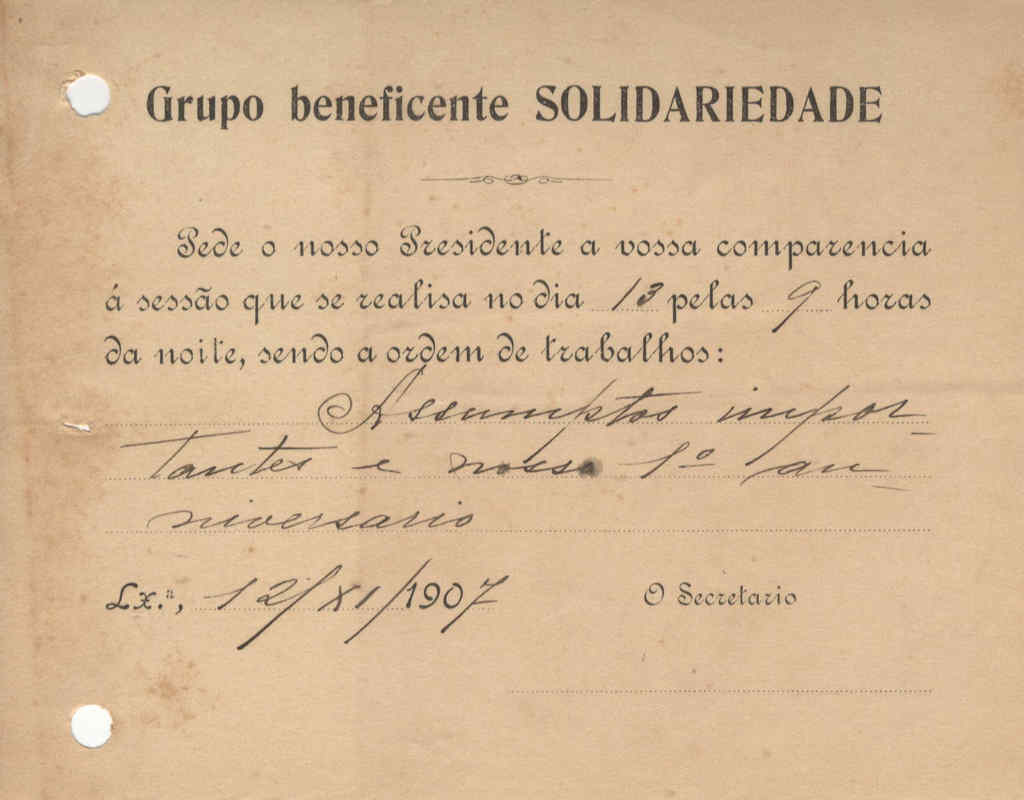 Grupo beneficente SOLIDARIEDADE
Pede o nosso Presidente a vossa comparencia
á sessão que se realisa no dia 13 pelas 9 horas
da noite, sendo a ordem de trabalhos:
Assumptos impor-
tantes e nosso 1º an-
niversario
Lx.ª, 12/XI/1907
O Secretario